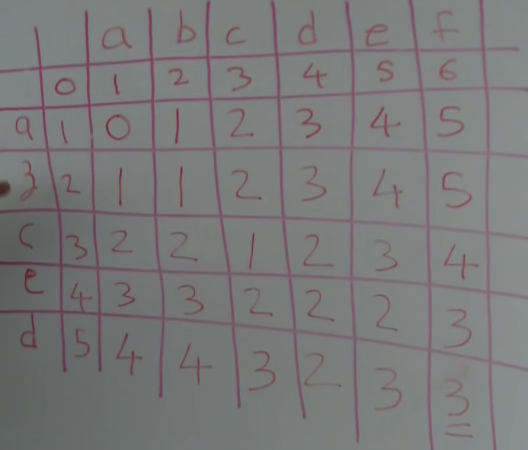 a b c d e f
0 1 2 3 4 5 6
a 1 0 1 2 3 4 5
z 2 1 1 2 3 4 5
c 3 2 2 1 2 3 4
e 4 3 3 2 2 2 3
d 5 4 4 3 2 3 3